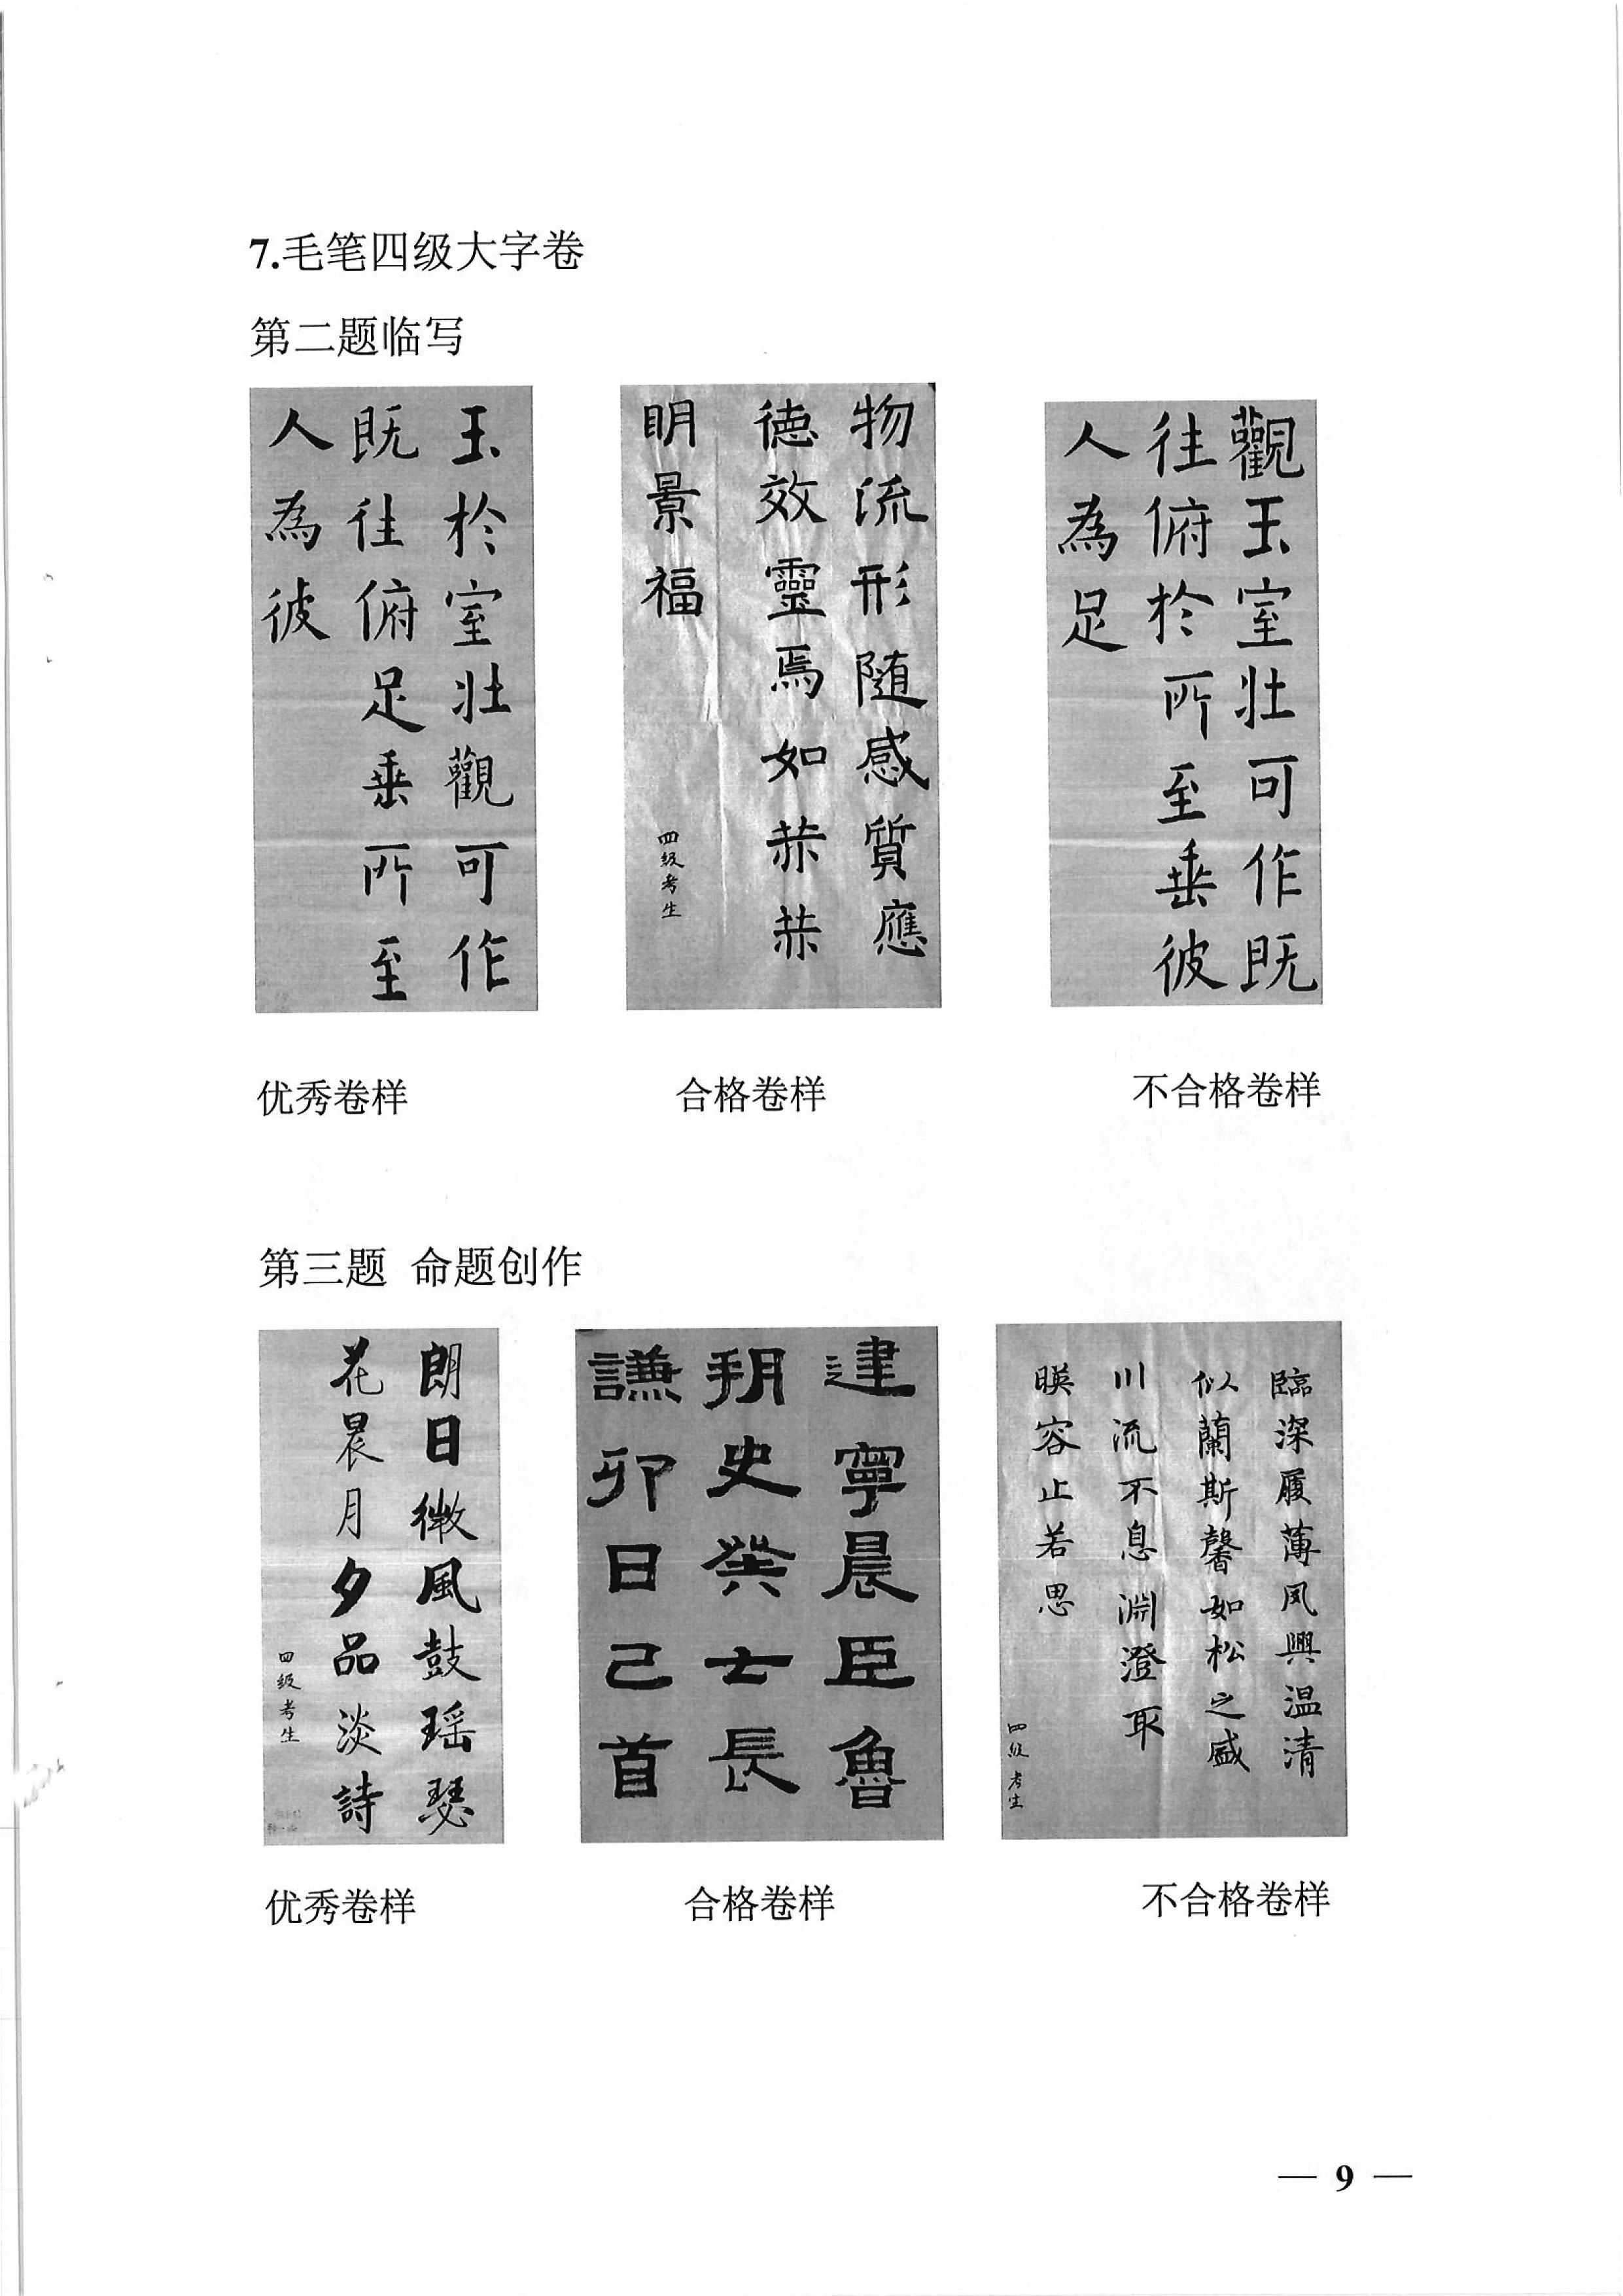 7.毛笔四级大字卷
第二题临写
玉於室壮觀可作
既往俯足垂所至
人為彼
物流形随感質應
德效靈焉如恭恭
明景福
四级考生
觀玉室壮可作既
往俯於所至垂彼
人為足
优秀卷样
合格卷样
不合格卷样
第三题 命题创作
朗日微風鼓瑶瑟
花晨月夕品淡詩
四级考生
建寧晨臣魯
朔史癸士長
謙卯日己首
臨深履薄夙興温清
似蘭斯馨如松之盛
川流不息淵澄取
暎容止若思
四级考生
优秀卷样
合格卷样
不合格卷样
— 9 —